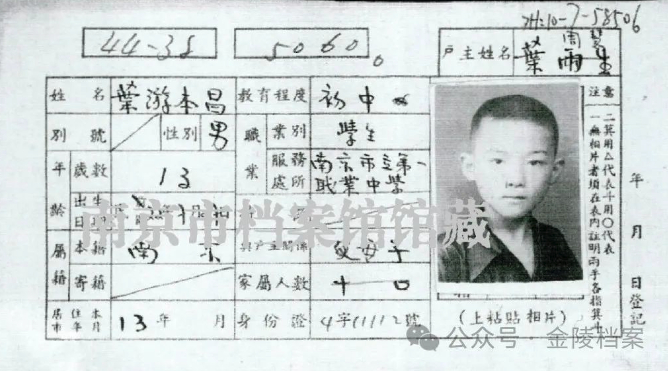 44-38
5060。
戶主姓名
葉雨生
姓名
葉游本昌
教育程度
初中
別號
性別
男
職業
業別
學生
服務處所
南京市立第一職業中學
年齡
歲數
13
出生日期
屬籍
本籍
南京
與戶主關係
寄籍
家屬人數
十口
居住本市年月
13年 月
身份證
4字11112號
(上粘貼相片)
注意
二箕用△代表斗用〇代表
一無相片者須在表內註明兩手各指箕斗
年 月 日登記
南京市档案馆馆藏
公众号·金陵档案